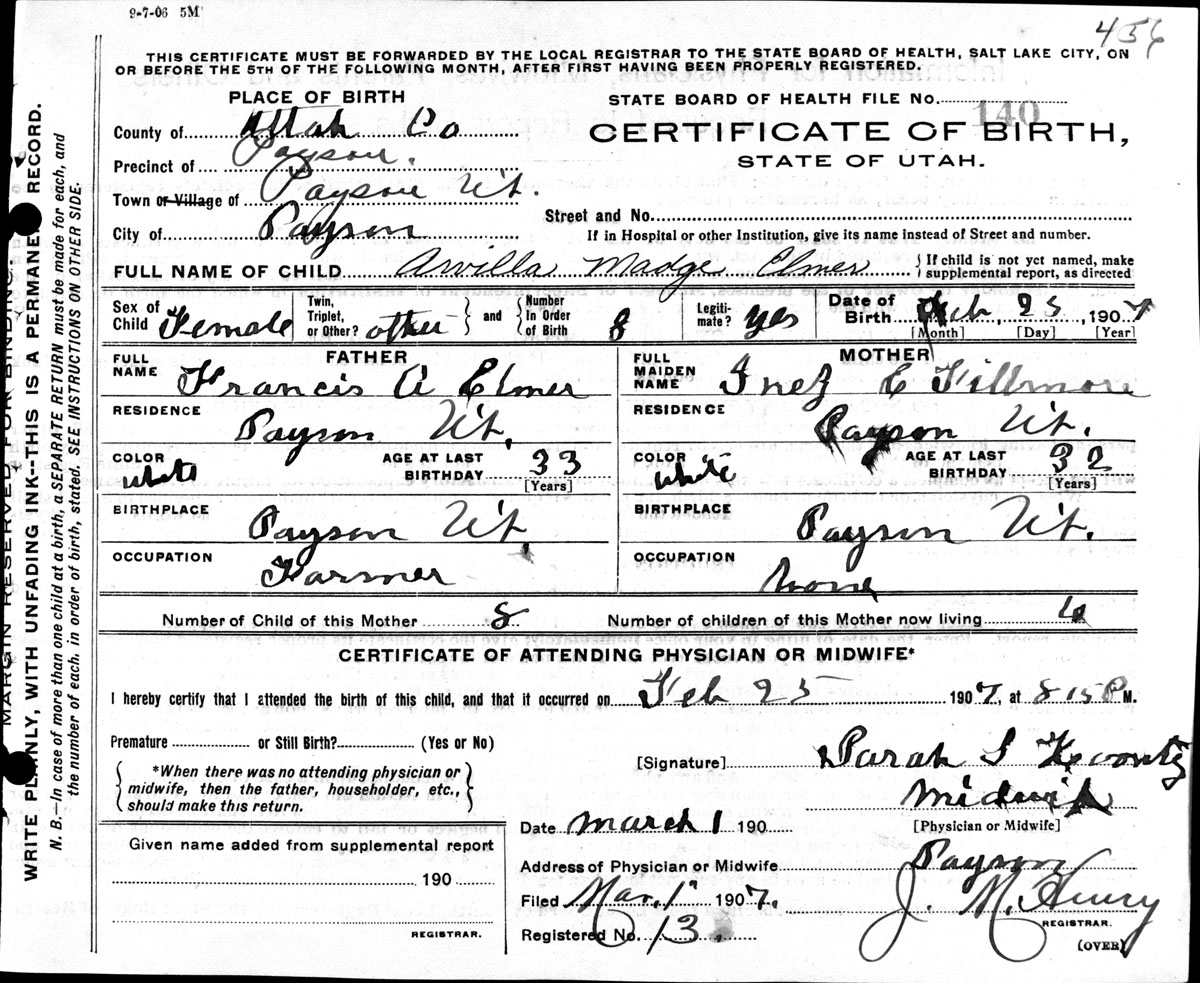 9-7-06 5M
456
THIS CERTIFICATE MUST BE FORWARDED BY THE LOCAL REGISTRAR TO THE STATE BOARD OF HEALTH, SALT LAKE CITY, ON
OR BEFORE THE 5TH OF THE FOLLOWING MONTH, AFTER FIRST HAVING BEEN PROPERLY REGISTERED.
PLACE OF BIRTH
STATE BOARD OF HEALTH FILE No.
140
County of Utah Co
CERTIFICATE OF BIRTH,
STATE OF UTAH.
Precinct of Payson.
Town or Village of Payson Ut.
Street and No.
City of Payson
If in Hospital or other Institution, give its name instead of Street and number.
FULL NAME OF CHILD Arvilla Madge Elmer { If child is not yet named, make
supplemental report, as directed
Sex of Child Female Twin, Triplet, or Other? other } and { Number In Order of Birth 8 Legiti-mate? yes Date of Birth Feb, 25, 1907
[Month] [Day] [Year]
FATHER
FULL NAME Francis A Elmer
RESIDENCE Payson Ut.
COLOR White AGE AT LAST BIRTHDAY 33
[Years]
BIRTHPLACE Payson Ut.
OCCUPATION Farmer
MOTHER
FULL MAIDEN NAME Inez E Fillmore
RESIDENCE Payson Ut.
COLOR White AGE AT LAST BIRTHDAY 32
[Years]
BIRTHPLACE Payson Ut.
OCCUPATION None
Number of Child of this Mother 8 Number of children of this Mother now living 6
CERTIFICATE OF ATTENDING PHYSICIAN OR MIDWIFE*
I hereby certify that I attended the birth of this child, and that it occurred on Feb 25 1907, at 8 15 P M.
Premature or Still Birth? (Yes or No)
*When there was no attending physician or
midwife, then the father, householder, etc.,
should make this return.
[Signature] Sarah S Koontz
Midwife
[Physician or Midwife]
Date March 1 190
Given name added from supplemental report
190
REGISTRAR.
Address of Physician or Midwife Payson
Filed Mar. 1" 1907.
J. M. Henry
REGISTRAR.
Registered No. 13.
(OVER)
MARGIN RESERVED FOR BINDING.
WRITE PLAINLY, WITH UNFADING INK--THIS IS A PERMANENT RECORD.
N. B.—In case of more than one child at a birth, a SEPARATE RETURN must be made for each, and
the number of each, in order of birth, stated. SEE INSTRUCTIONS ON OTHER SIDE.